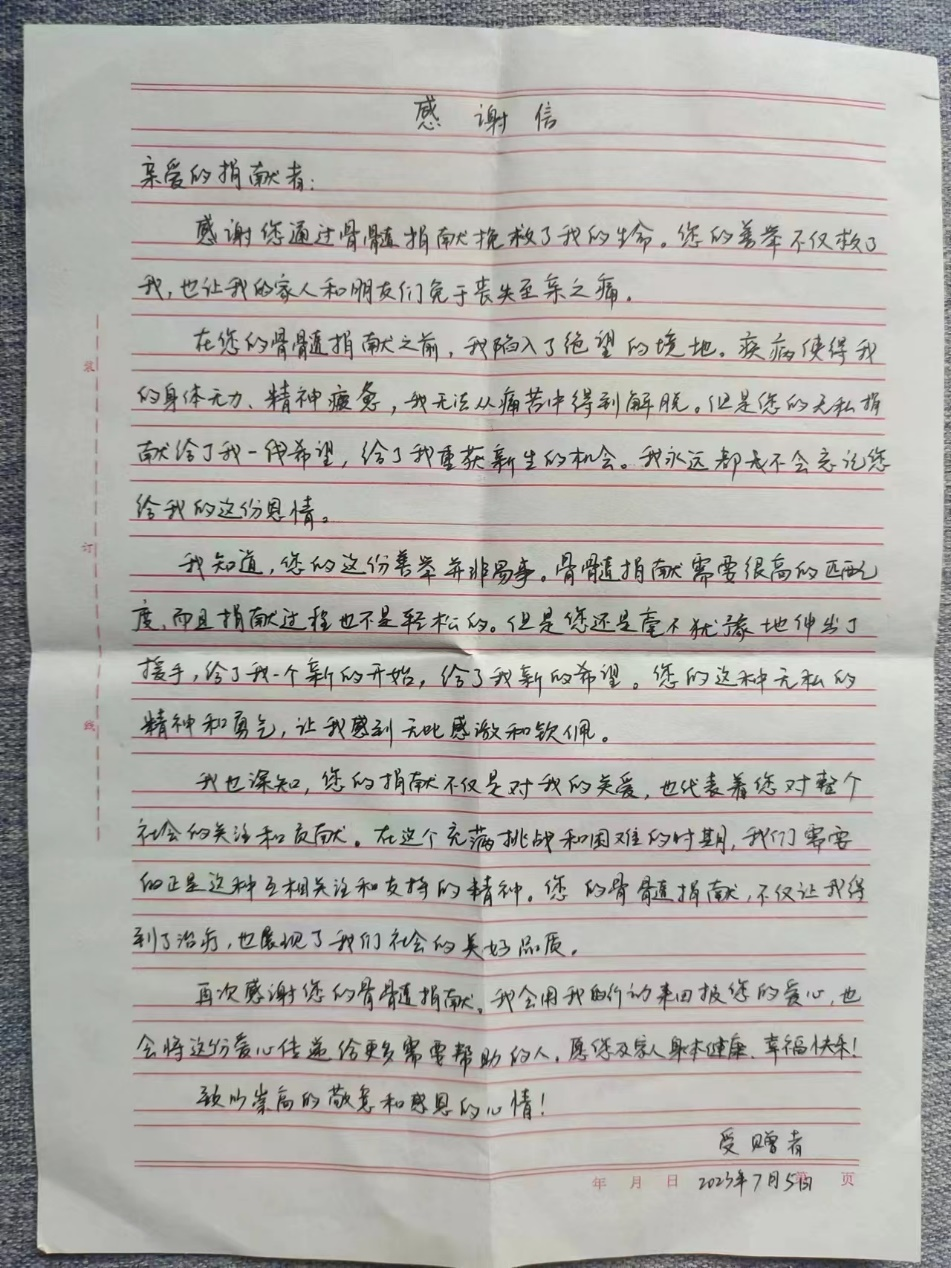 感谢信
亲爱的捐献者:
感谢您通过骨髓捐献挽救了我的生命。您的善举不仅救了
我,也让我的家人和朋友们免于丧失至亲之痛。
在您的骨髓捐献之前,我陷入了绝望的境地。疾病使得我
的身体无力、精神疲惫,我无法从痛苦中得到解脱。但是您的无私捐
献给了我一线希望,给了我重获新生的机会。我永远都是不会忘记您
给我的这份恩情。
我知道,您的这份善举并非易事。骨髓捐献需要很高的匹配
度,而且捐献过程也不是轻松的。但是您还是毫不犹豫地伸出了
援手,给了我一个新的开始,给了我新的希望。您的这种无私的
精神和勇气,让我感到无比感激和钦佩。
我也深知,您的捐献不仅是对我的关爱,也代表着您对整个
社会的关注和贡献。在这个充满挑战和困难的时期,我们需要
的正是这种互相关注和支持的精神。您的骨髓捐献,不仅让我得
到了治疗,也展现了我们社会的美好品质。
再次感谢您的骨髓捐献。我会用我的行动来回报您的爱心,也
会将这份爱心传递给更多需要帮助的人。愿您及家人身体健康、幸福快乐!
致以崇高的敬意和感恩的心情!
受赠者
年 月 日 2023年7月5日 第 页
装
订
线